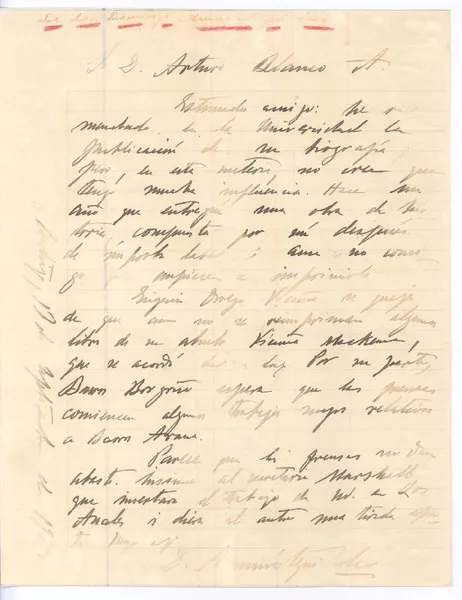 S D. Arturo Blanco A.
Estimado amigo: he re
mendado en la Universidad la
publicación de su biografía,
pero, en esta materia, no crea que
tengo mucha influencia. Hace un
año que entregué una obra de his
toria compuesta por mí después
de ímproba labor i aun no consi
go empiecen a imprimirla
Eugenio Orrego Vicuña se queja
de que aun no se reimpriman algunos
libros de su abuelo Vicuña Mackenna,
que se acordó dar a luz. Por su parte,
Barros Borgoño espera que las prensas
comiencen algunos trabajos suyos relativos
a Barros Arana.
Parece que las prensas no dan
abasto. Insinué al secretario Marshall
que insertara el trabajo de Ud. en Los
Anales i diera al autor una tirada apar
te.
D. Amunátegui Solar